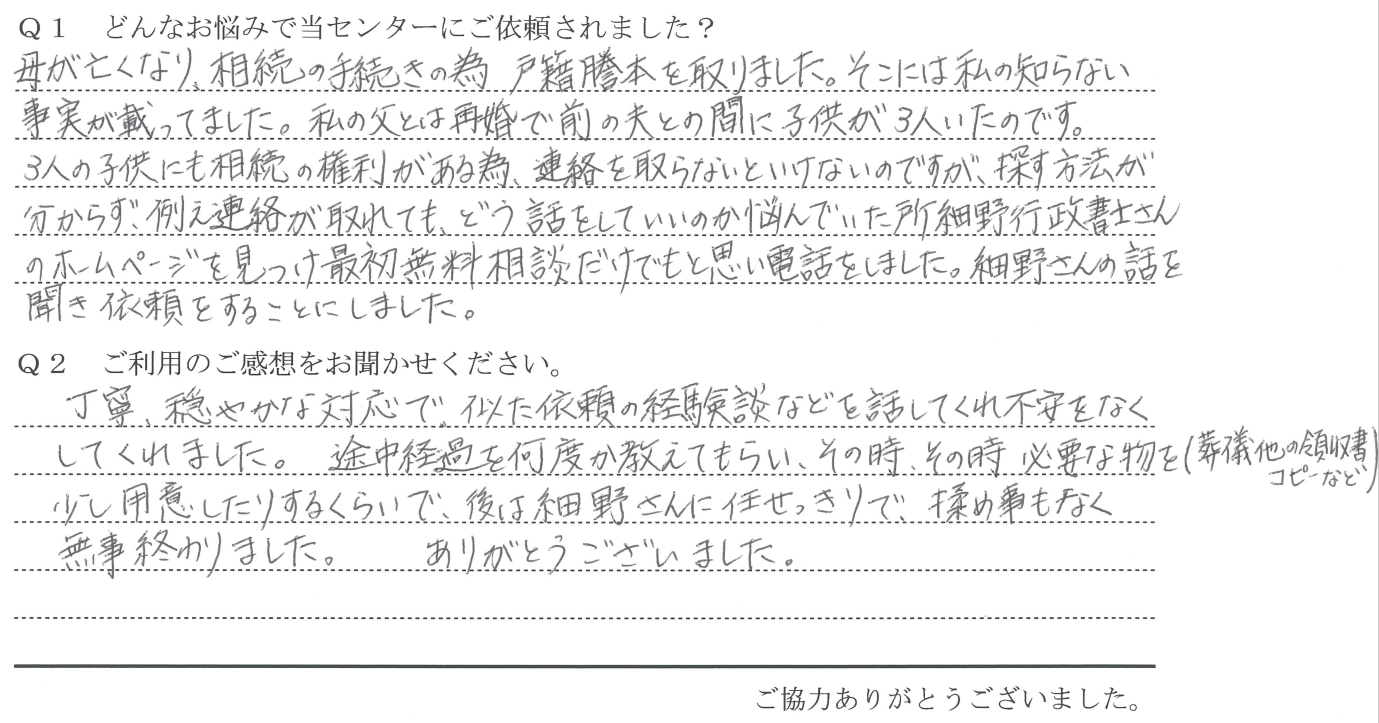 Q1 どんなお悩みで当センターにご依頼されました?
母が亡くなり、相続の手続きの為 戸籍謄本を取りました。そこには私の知らない
事実が載ってました。私の父とは再婚で前の夫との間に子供が3人いたのです。
3人の子供にも相続の権利がある為、連絡を取らないといけないのですが、探す方法が
分からず、例え連絡が取れても、どう話をしていいのか悩んでいた所細野行政書士さん
のホームページを見つけ最初無料相談だけでもと思い電話をしました。細野さんの話を
聞き依頼をすることにしました。
Q2 ご利用のご感想をお聞かせください。
丁寧、穏やかな対応で、似た依頼の経験談などを話してくれ不安をなく
してくれました。 途中経過を何度か教えてもらい、その時、その時 必要な物を(葬儀他の領収書
コピーなど)
少し用意したりするくらいで、後は細野さんに任せっきりで、揉め事もなく
無事終わりました。 ありがとうございました。
ご協力ありがとうございました。